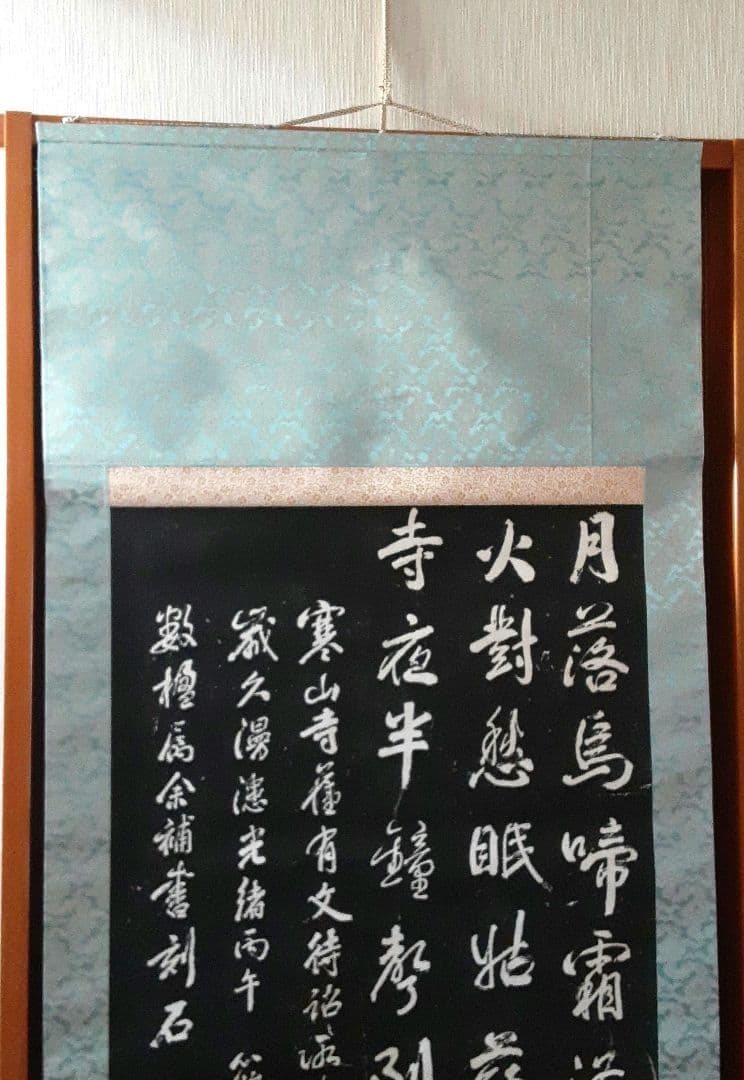 月落烏啼霜
火對愁眠姑蘇
寺夜半鐘聲到
寒山寺舊有文待詔
歲久漫漶光緒丙午筱
數楹屬余補書刻石